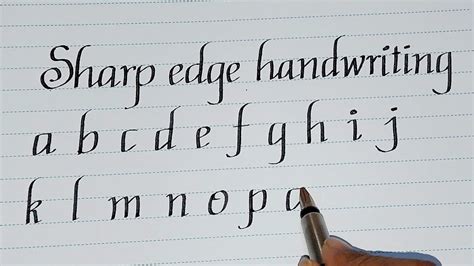 Sharp edge handwriting
a b c d e f g h i j
k l m n o p